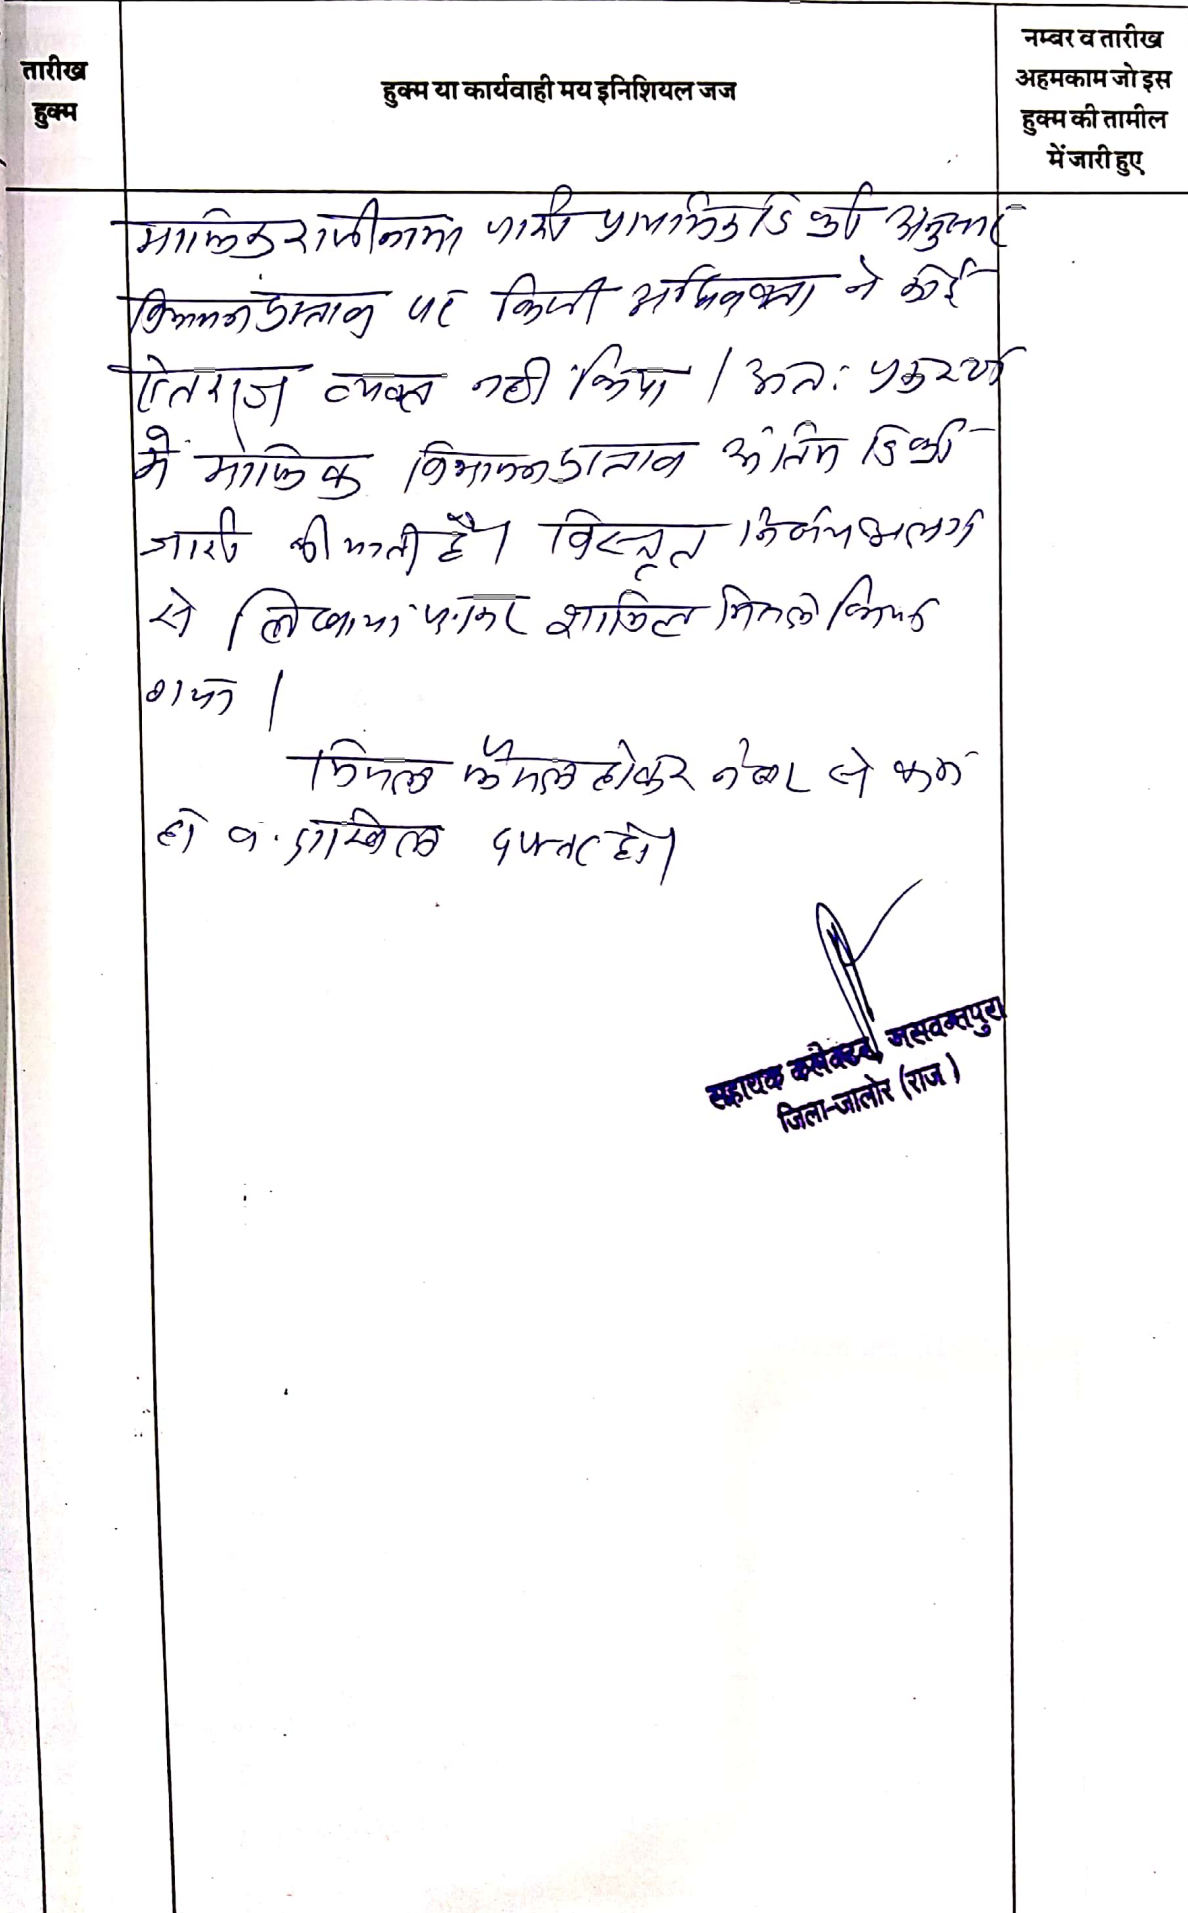 तारीख
हुक्म
हुक्म या कार्यवाही मय इनिशियल जज
नम्बर व तारीख
अहमकाम जो इस
हुक्म की तामील
में जारी हुए
माफिक राजीनामा जारी प्राथमिक डिक्री अनुसार
विभाजन प्रस्ताव पर किसी अधिवक्ता ने कोई
ऐतराज व्यक्त नहीं किया। अतः प्रकरण
में माफिक विभाजन प्रस्ताव अंतिम डिक्री
जारी की जाती है। विस्तृत निर्णय अलग
से लिखाया जाकर शामिल मिसल किया
गया।
मिसल फैसल होकर नंबर से कम
हो व दाखिल दफ्तर हो।
सहायक कलेक्टर जसवन्तपुरा
जिला-जालोर (राज)